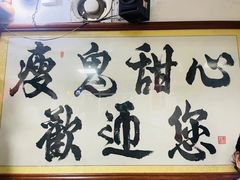 瘦鬼甜心
歡迊您